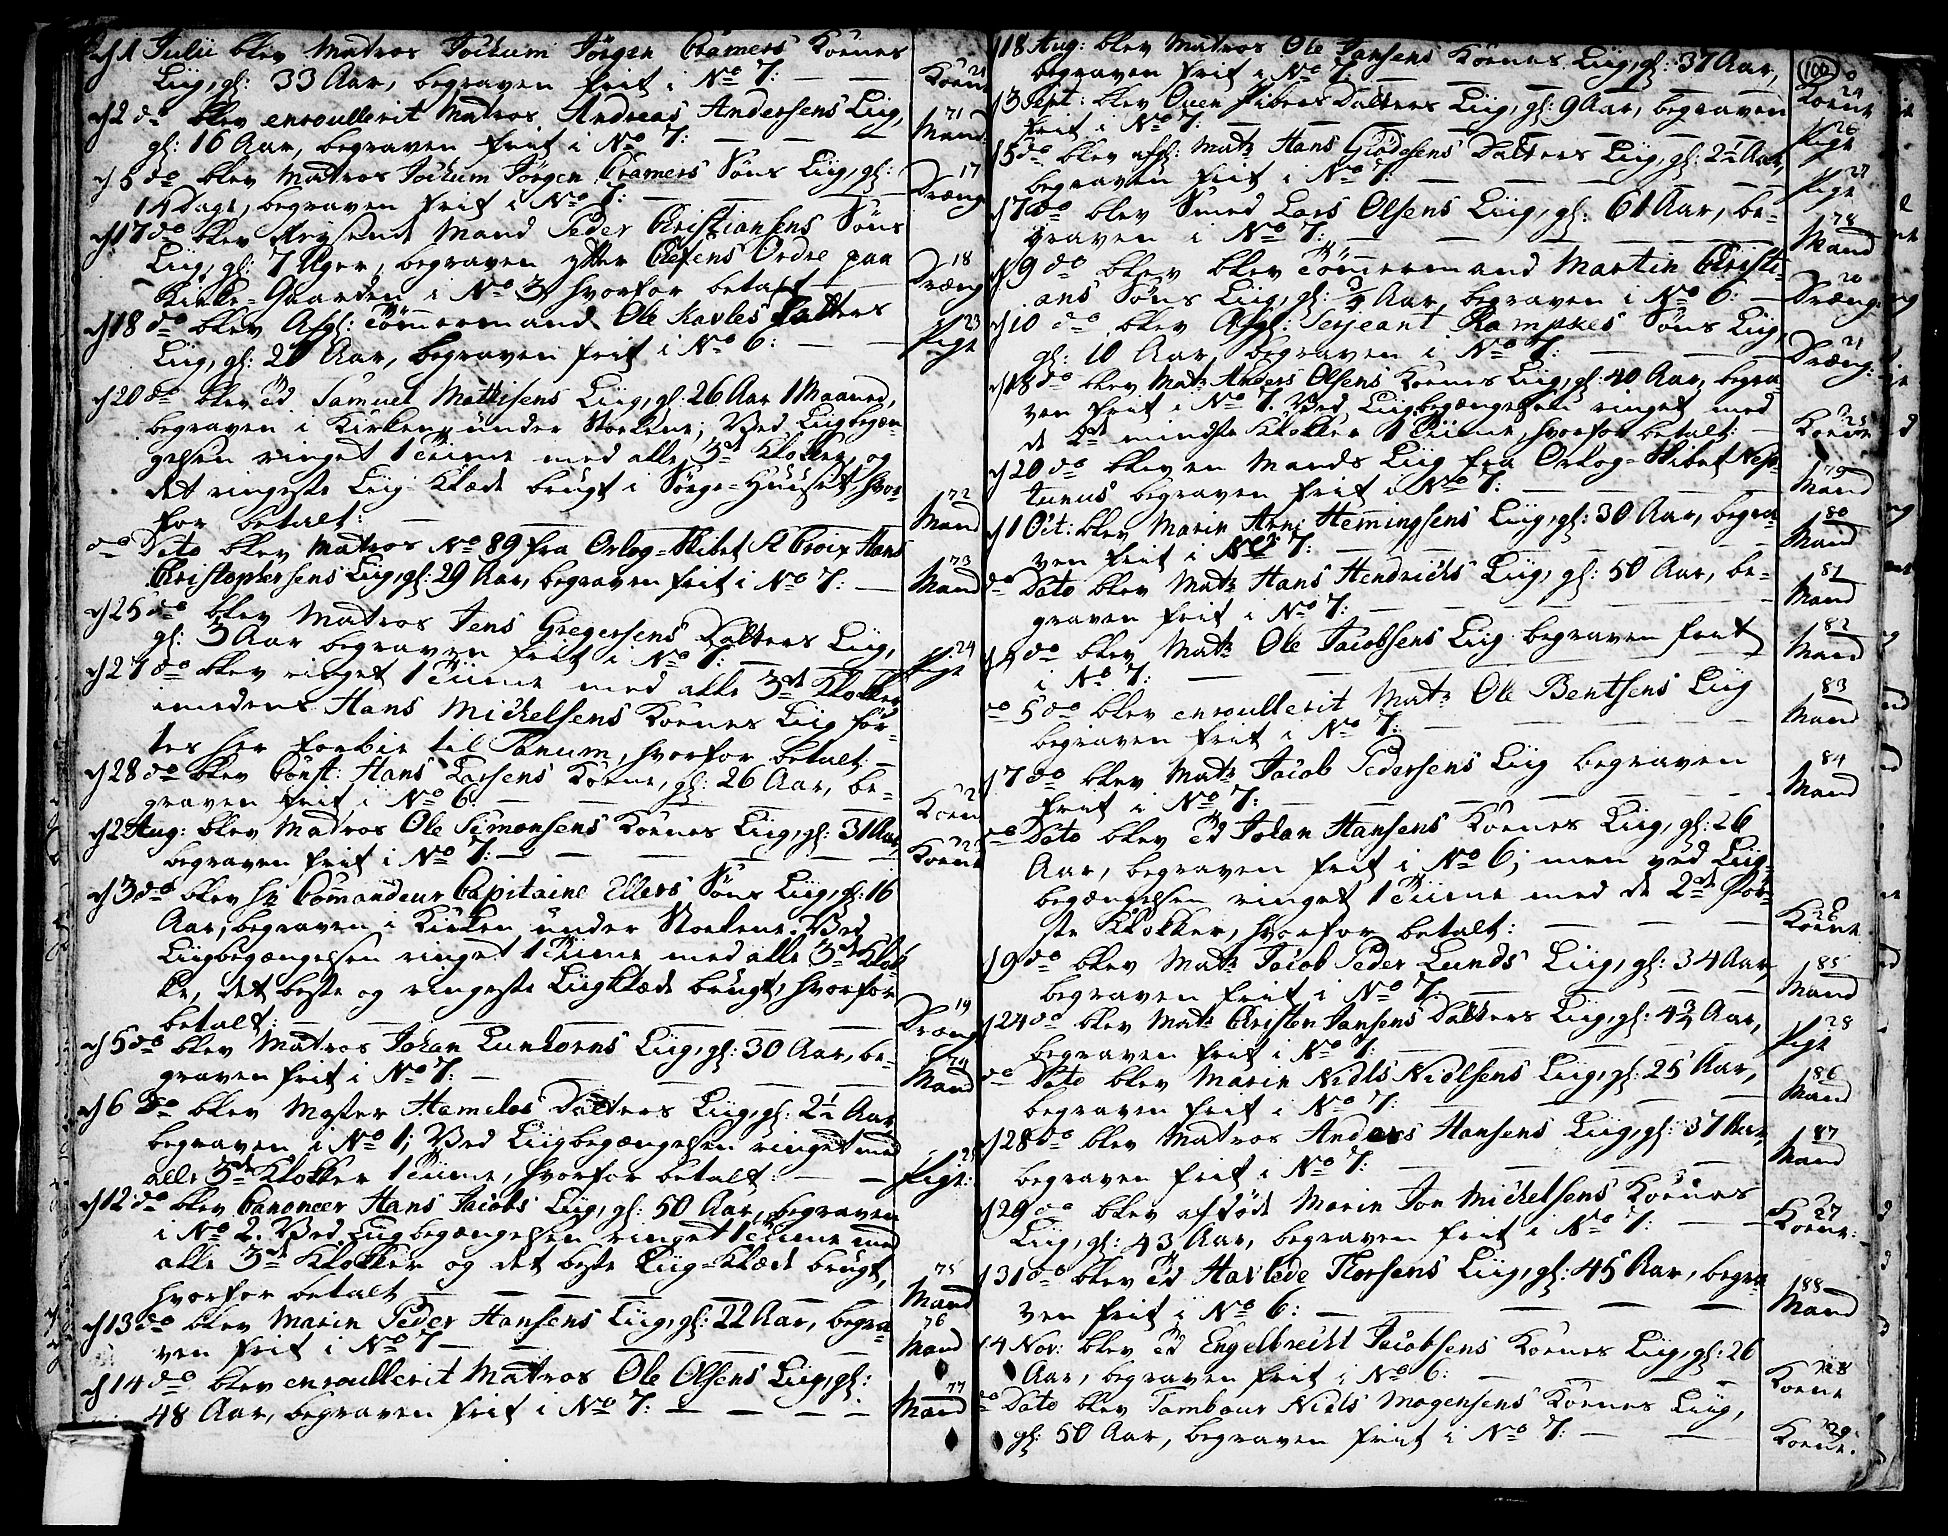 d 1 Julii blev Matros Jochum Jörgen Cramers Koenes
Liig, gl: 33 Aar, begraven frit i No 7: — —
Koene
d 2 do blev enroullerit Matros Andreas Andersens Liig,
gl: 16 Aar, begraven frit i No 7: — —
71 Mand
d 5 do blev Matros Jochum Jörgen Cramers Söns Liig, gl:
14 Dage, begraven frit i No 7: — —
17 Dræng
d 17 do blev Mand Peder Christiansens Söns
Liig, gl: 7 Uger, begraven efter Chefens Ordre paa
Kirke-Gaarden i No 3, hvorfor betalt —
18 Dræng
d 18 do blev Afgl: Tömmermand Ole Datters
Liig, gl: Aar, begraven frit i No 6: — —
23 Pige
d 20 do blev Samuel Mathisens Liig, gl: 26 Aar 1 Maaned,
begraven i Kirken under Stoelene; Ved Liigbegæn-
gelsen ringet 1 Tiime med alle 3de Klokker, og
det ringeste Liig-Klæde brugt i Sörge-Huuset, hvor-
for betalt: —
72 Mand
do Dato blev Matros No 89 fra Orlog-Skibet St Croix Hans
Christophersens Liig, gl: 29 Aar, begraven frit i No 7: —
73 Mand
d 25 do blev Matros Jens Gregersens Datters Liig,
gl: 3 Aar begraven frit i No 7: —
24 Pige
d 27 do blev ringet 1 Tiime med alle 3de Klokker
imedens Hans Michelsens Koenes Liig för-
tes her forbie til Tanum, hvorfor betalt: —
d 28 do blev Const: Hans Larsens Koene, gl: 26 Aar, be-
graven frit i No 6 — —
Koene
d 2 Aug: blev Matros Ole Simonsens Koenes Liig, gl: 31 Aar,
begraven frit i No 7: — —
Koene
d 3 do blev Hr Comandeur Capitaine Ellers Söns Liig, gl: 16
Aar, begraven i Kirken under Stoelene. Ved
Liigbegængelsen ringet 1 Tiime med alle 3de Klok-
ke, det beste og ringeste Liigklæde brugt, hvorfor
betalt: —
19 Dræng
d 5 do blev Matros Johan Lunhorns Liig, gl: 30 Aar, be-
graven frit i No 7: —
74 Mand
d 6 do blev Mester Hameles Datters Liig, gl: 2½ Aar
begraven i No 1; Ved Liigbegængelsen ringet med
alle 3de Klokker 1 Tiime, hvorfor betalt: — —
25 Pige:
d 12 do blev Canoneer Hans Jacobs Liig, gl: 50 Aar, begraven
i No 2. Ved Liigbegængelsen ringet 1 Tiime med
alle 3de Klokker og det beste Liig-Klæde brugt,
hvorfor betalt —
75 Mand
d 13 do blev Marin Peder Hansens Liig, gl: 22 Aar, begra-
ven frit i No 7 —
76 Mand
d 14 do blev enroullerit Matros Ole Olsens Liig, gl:
48 Aar, begraven frit i No 7: — — —
77 Mand
100
d 18 Aug: blev Matros Ole Jansens Koenes Liig, gl: 37 Aar,
begraven frit i No 7: —
24 Koene
d 3 Sept: blev Datters Liig, gl: 9 Aar, begraven
frit i No 7: —
26 Pige
d 5 do blev afgl: Matr Hans Glödesens Datters Liig, gl: 2½ Aar,
begraven frit i No 7: —
27 Pige
d 7 do blev Smed Lars Olsens Liig, gl: 61 Aar, be-
graven i No 7: —
78 Mand
d 9 do blev blev Tömmermand Martin Christi-
ans Söns Liig, gl: ¾ Aar, begraven i No 6: —
20 Dræng:
d 10 do blev Afgl: Serjeant Rampkes Söns Liig,
gl: 10 Aar, begraven i No 7: —
21 Dræng:
d 18 do blev Matr Anders Olsens Koenes Liig, gl: 40 Aar, begra-
ven frit i No 7. Ved Liigbegængelsen ringet med
de 2de mindste Klokker 1 Tiime, hvorfor betalt: —
25 Koene
d 20 do blev en Mands Liig fra Orlog-Skibet Nep-
tunus begraven frit i No 7: —
79 Mand
d 1 Oct: blev Marin Arne Hemingsens Liig, gl: 30 Aar, begra-
ven frit i No 7: —
80 Mand
do Dato blev Matr Hans Hendrichs Liig, gl: 50 Aar, be-
graven frit i No 7: —
81 Mand
d 4 do blev Matr Ole Jacobsens Liig begraven frit
i No 7: —
82 Mand
do 5 do blev enroullerit Matr Ole Bentsens Liig
begraven frit i No 7: —
83 Mand
d 7 do blev Matr Jacob Pedersens Liig begraven
frit i No 7: —
84 Mand
do Dato blev Johan Hansens Koenes Liig, gl: 26
Aar, begraven frit i No 6; men ved Liig-
begængelsen ringet 1 Tiime med de 2de stör-
ste Klokker, hvorfor betalt: —
26 Koene
d 9 do blev Matr Jacob Peder Lunds Liig, gl: 34 Aar,
begraven frit i No 7: —
85 Mand
d 24 do blev Matr Christen Jansens Datters Liig, gl: 4¾ Aar,
begraven frit i No 7: —
28 Pige
do Dato blev Marin Niels Nielsens Liig, gl: 25 Aar,
begraven frit i No 7: —
86 Mand
d 28 do blev Matros Anders Hansens Liig, gl: 37 Aar,
begraven frit i No 7: —
87 Mand
d 29 do blev afdöde Marin Jon Michelsens Koenes
Liig, gl: 43 Aar, begraven frit i No 7: — —
27 Koene:
d 31 do blev Havlede Thorsens Liig, gl: 45 Aar, begra-
ven frit i No 6: —
88 Mand
d 4 Nov: blev Engelbrecht Jacobsens Koenes Liig, gl: 26
Aar, begraven frit i No 6: —
28 Koene
do Dato blev Tambour Niels Mogensens Koenes Liig,
gl: 50 Aar, begraven frit i No 7: —
29 Koene.